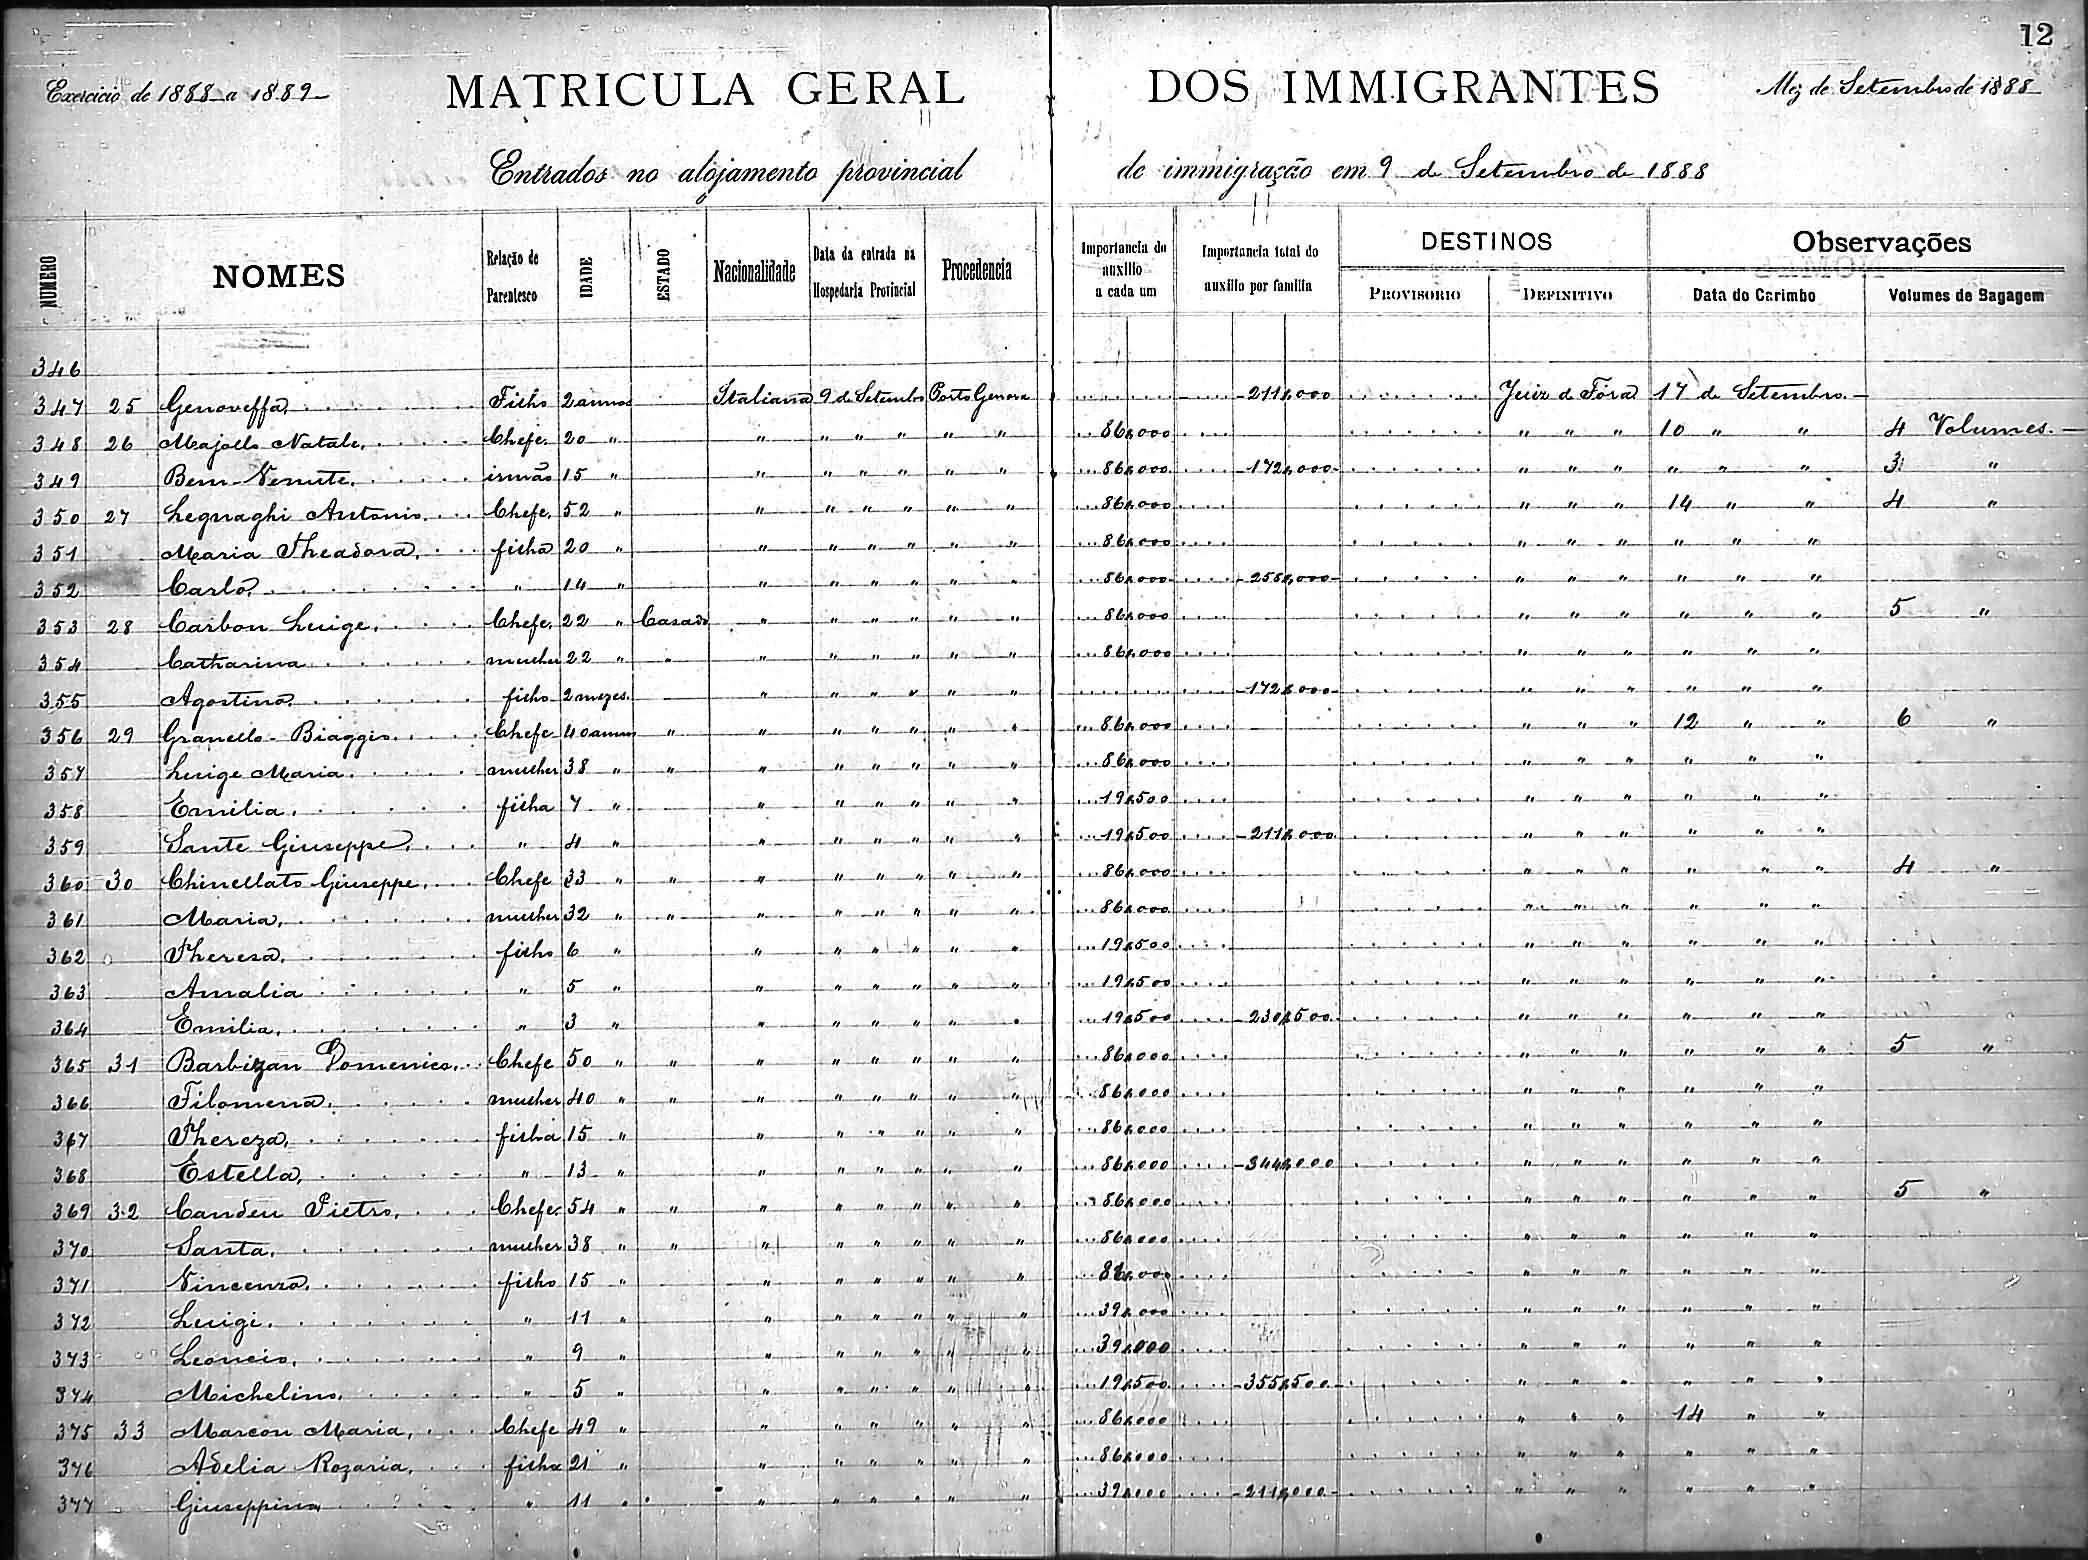 12
Exercicio de 1888 a 1889 MATRICULA GERAL DOS IMMIGRANTES Mez de Setembro de 1888
Entrados no alojamento provincial de immigração em 9 de Setembro de 1888
NUMERO NOMES Relação de Parentesco IDADE ESTADO Nacionalidade Data da entrada na Hospedaria Provincial Procedencia Importancia do auxilio a cada um Importancia total do auxilio por familia DESTINOS PROVISORIO DEFINITIVO Observações Data do Carimbo Volumes de Bagagem
346
347 25 Genoveffa Filho 2 annos Italiana 9 de Setembro Porto Genova 211$000 Juiz de Fóra 17 de Setembro
348 26 Majollo Natale Chefe 20 " " " " " " " 86$000 " " " 10 " " 4 Volumes
349 Bem-Venute irmão 15 " " " " " " " 86$000 172$000 " " " " " " 3 "
350 27 Legnaghi Antonio Chefe 52 " " " " " " " 86$000 " " " 14 " " 4 "
351 Maria Theadora filha 20 " " " " " " " 86$000 " " " " " "
352 Carlo " 14 " " " " " " " 86$000 258$000 " " " " " "
353 28 Carbon Luige Chefe 22 " Casado " " " " " " 86$000 " " " " " " 5 "
354 Catharina mulher 22 " " " " " " " " 86$000 " " " " " "
355 Agostino filho 2 mezes " " " " " " 172$000 " " " " " "
356 29 Granello Biaggio Chefe 40 annos " " " " " " " 86$000 " " " 12 " " 6 "
357 Luige Maria mulher 38 " " " " " " " " 86$000 " " " " " "
358 Emilia filha 7 " " " " " " " 19$500 " " " " " "
359 Sante Giuseppe " 4 " " " " " " " 19$500 211$000 " " " " " "
360 30 Chinellato Giuseppe Chefe 33 " " " " " " " " 86$000 " " " " " " 4 "
361 Maria mulher 32 " " " " " " " " 86$000 " " " " " "
362 Theresa filho 6 " " " " " " " 19$500 " " " " " "
363 Amalia " 5 " " " " " " " 19$500 " " " " " "
364 Emilia " 3 " " " " " " " 19$500 230$500 " " " " " "
365 31 Barbizan Domenico Chefe 50 " " " " " " " " 86$000 " " " " " " 5 "
366 Filomena mulher 40 " " " " " " " " 86$000 " " " " " "
367 Thereza filha 15 " " " " " " " 86$000 " " " " " "
368 Estella " 13 " " " " " " " 86$000 344$000 " " " " " "
369 32 Candeu Pietro Chefe 54 " " " " " " " " 86$000 " " " " " " 5 "
370 Santa mulher 38 " " " " " " " " 86$000 " " " " " "
371 Vincenza filho 15 " " " " " " " 86$000 " " " " " "
372 Luigi " 11 " " " " " " " 39$000 " " " " " "
373 Leoncio " 9 " " " " " " " 39$000 " " " " " "
374 Michelino " 5 " " " " " " " 19$500 355$500 " " " " " "
375 33 Marcon Maria Chefe 49 " " " " " " " 86$000 " " " 14 " "
376 Adelia Rozaria filha 21 " " " " " " " 86$000 " " " " " "
377 Giuseppina " 11 " " " " " " " 39$000 211$000 " " " " " "